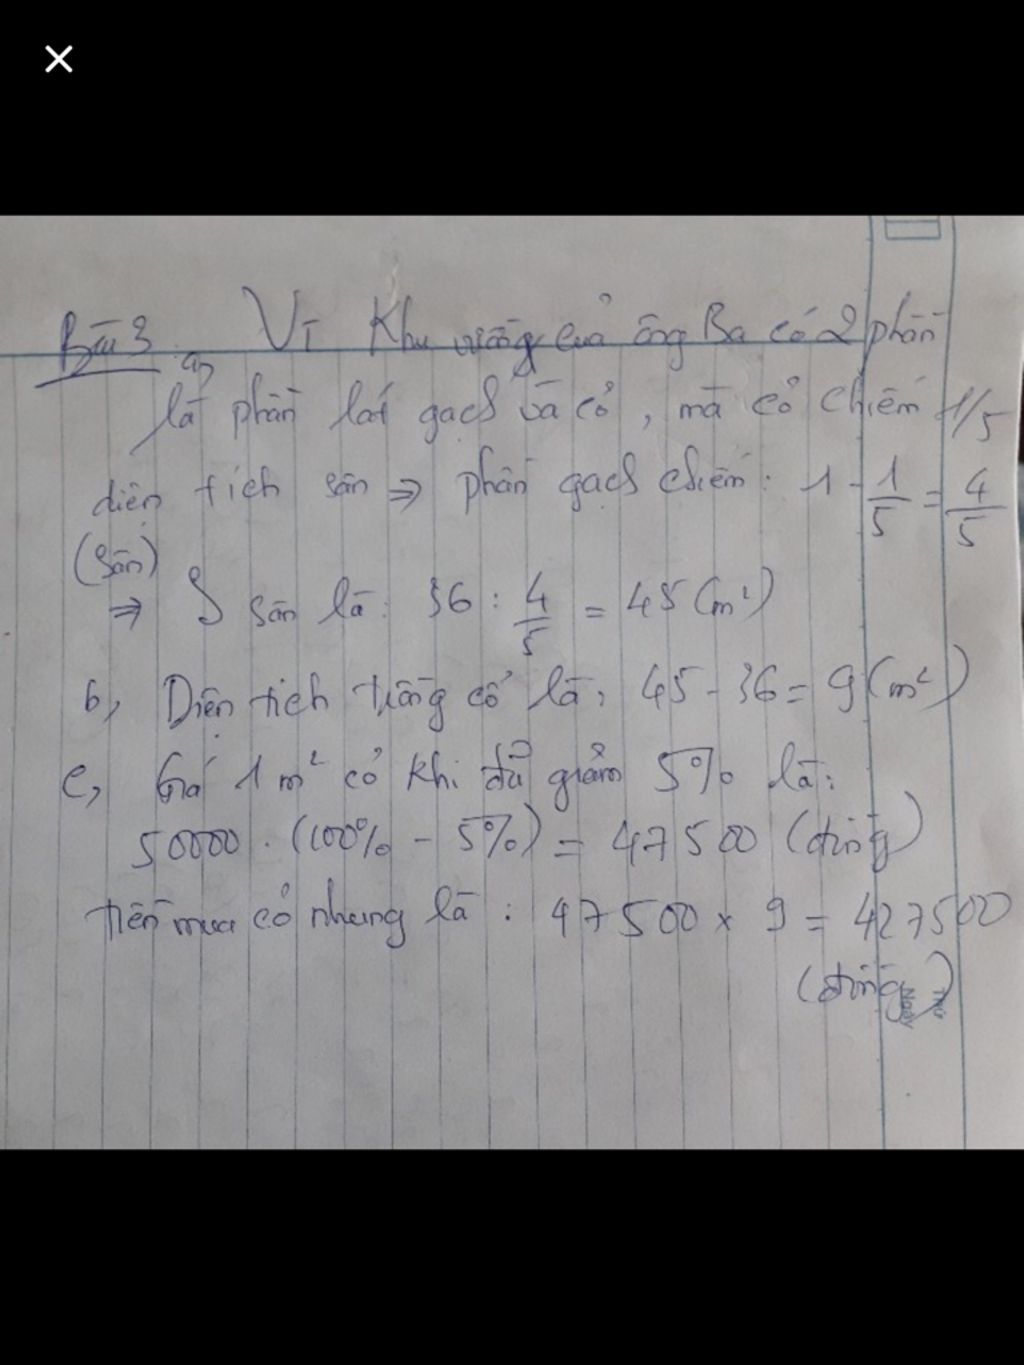 Bài 3 a, Vì Khu vườn của ông Ba có 2 phần
là phần lát gạch và cỏ, mà cỏ chiếm 1/5
diện tích sân ⇒ phần gạch chiếm: 1 - 1/5 = 4/5
(sân)
⇒ S sân là: 36 : 4/5 = 45 (m²)
b, Diện tích trồng cỏ là: 45 - 36 = 9 (m²)
c, Giá 1 m² cỏ khi đã giảm 5% là:
50000 . (100% - 5%) = 47500 (đồng)
tiền mua cỏ nhung là : 47500 x 9 = 427500
(đồng)
Thứ
Ngày